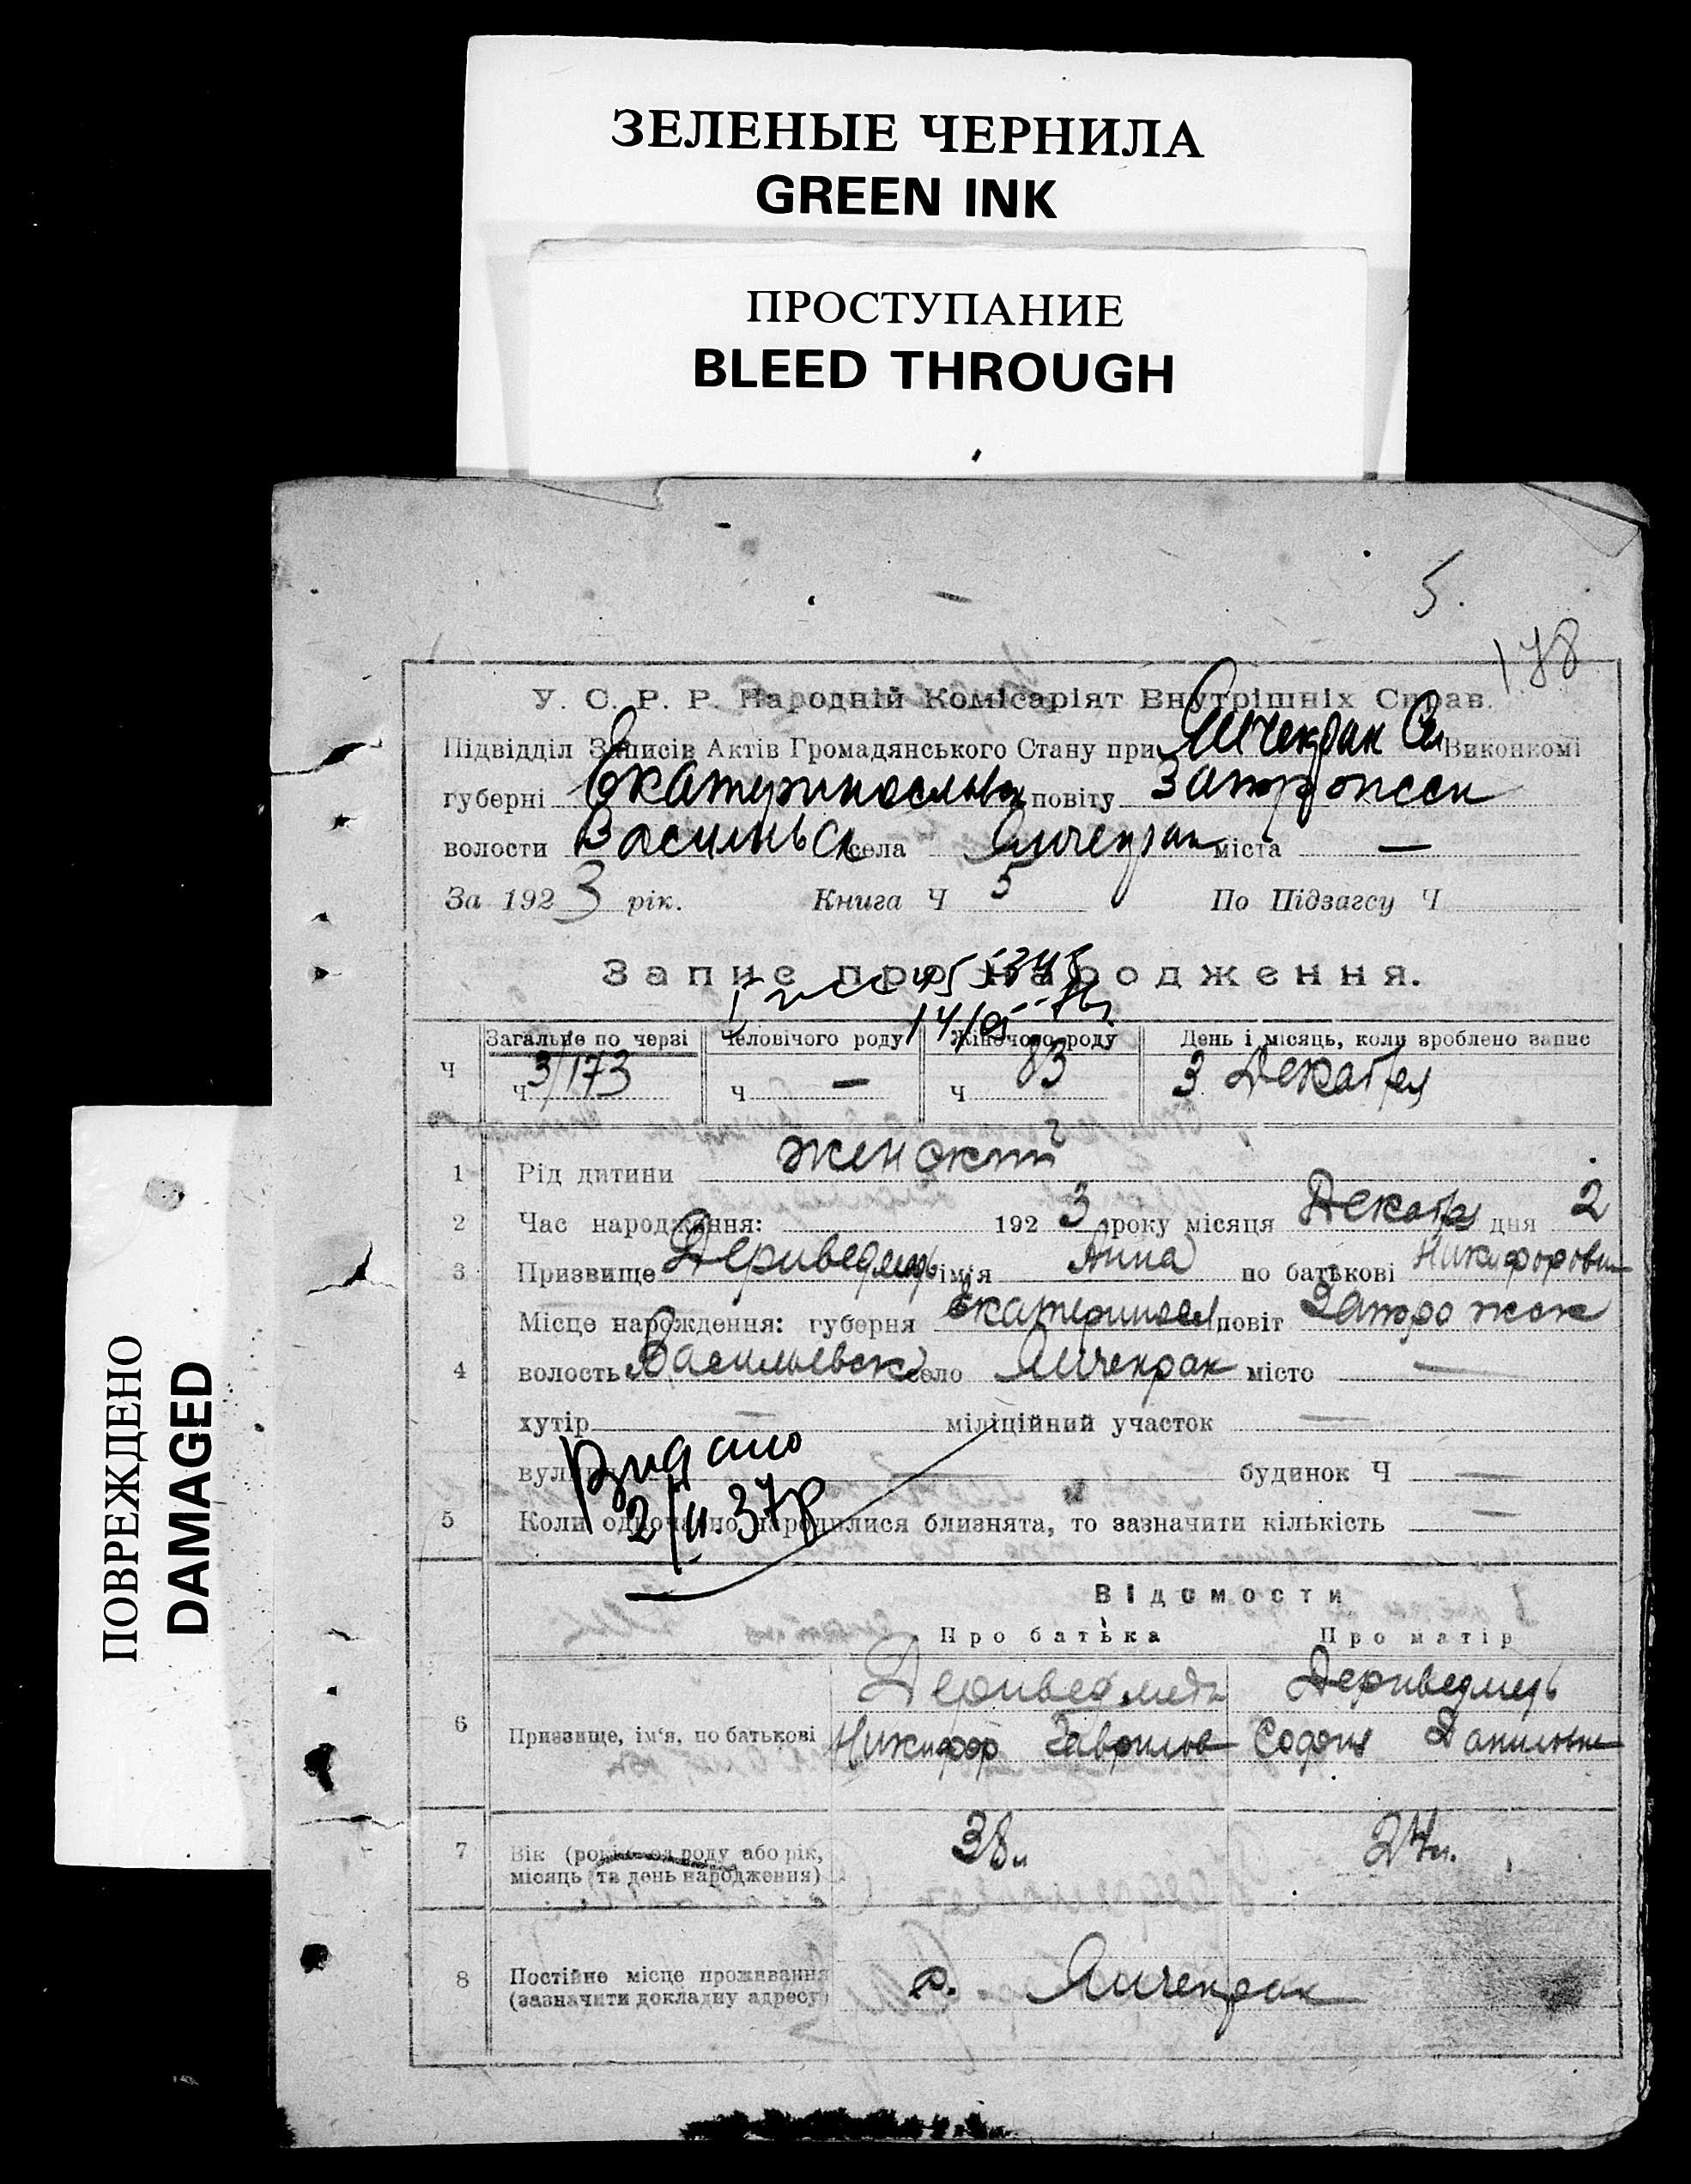 ЗЕЛЕНЫЕ ЧЕРНИЛА
GREEN INK
ПРОСТУПАНИЕ
BLEED THROUGH
ПОВРЕЖДЕНО
DAMAGED
5.
178
У. С. Р. Р. Народній Комісаріят Внутрішніх Справ.
Підвідділ Записів Актів Громадянського Стану при Янчекрак Сел Виконкомі
губерні Екатеринославск повіту Запорожск
волости Васильевск села Янчекрак міста —
За 1923 рік. Книга Ч 5 По Підзагсу Ч
Запис про народження.
Загальне по черзі Человічого роду Жіночого роду День і місяць, коли зроблено запис
Ч ч 3/173 ч — ч 83 3 Декабря
1 Рід дитини женский
2 Час народження: 1923 року місяця Декабря дня 2
3 Призвище Дериведмедь імія Анна по батькові Никифоровн
Місце народження: губерня Екатериносл повіт Запорожск
4 волость Васильевск село Янчекрак місто —
хутір — міліційний участок —
вулиця — будинок Ч —
Видано
2/II. 37р
5 Коли одночасно народилися близнята, то зазначити кількість —
Відомости
Про батька Про матір
Дериведмедь Дериведмедь
6 Призвище, ім'я, по батькові Никифор Гаврилов София Даниловна
7 Вік (років од роду або рік, 38л 27л.
місяць та день народження)
8 Постійне місце проживання с. Янчекрак
(зазначити докладну адресу)